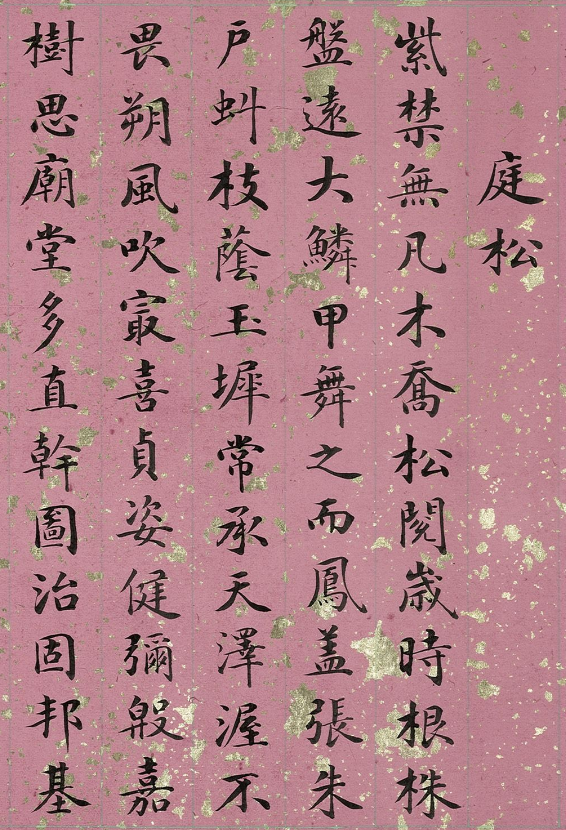 庭松
紫禁無凡木喬松閱歲時根株
盤遠大鱗甲舞之而鳳盖張朱
戶蚪枝蔭玉墀常承天澤渥不
畏朔風吹冣喜貞姿健彌殷嘉
樹思廟堂多直幹圖治固邦基